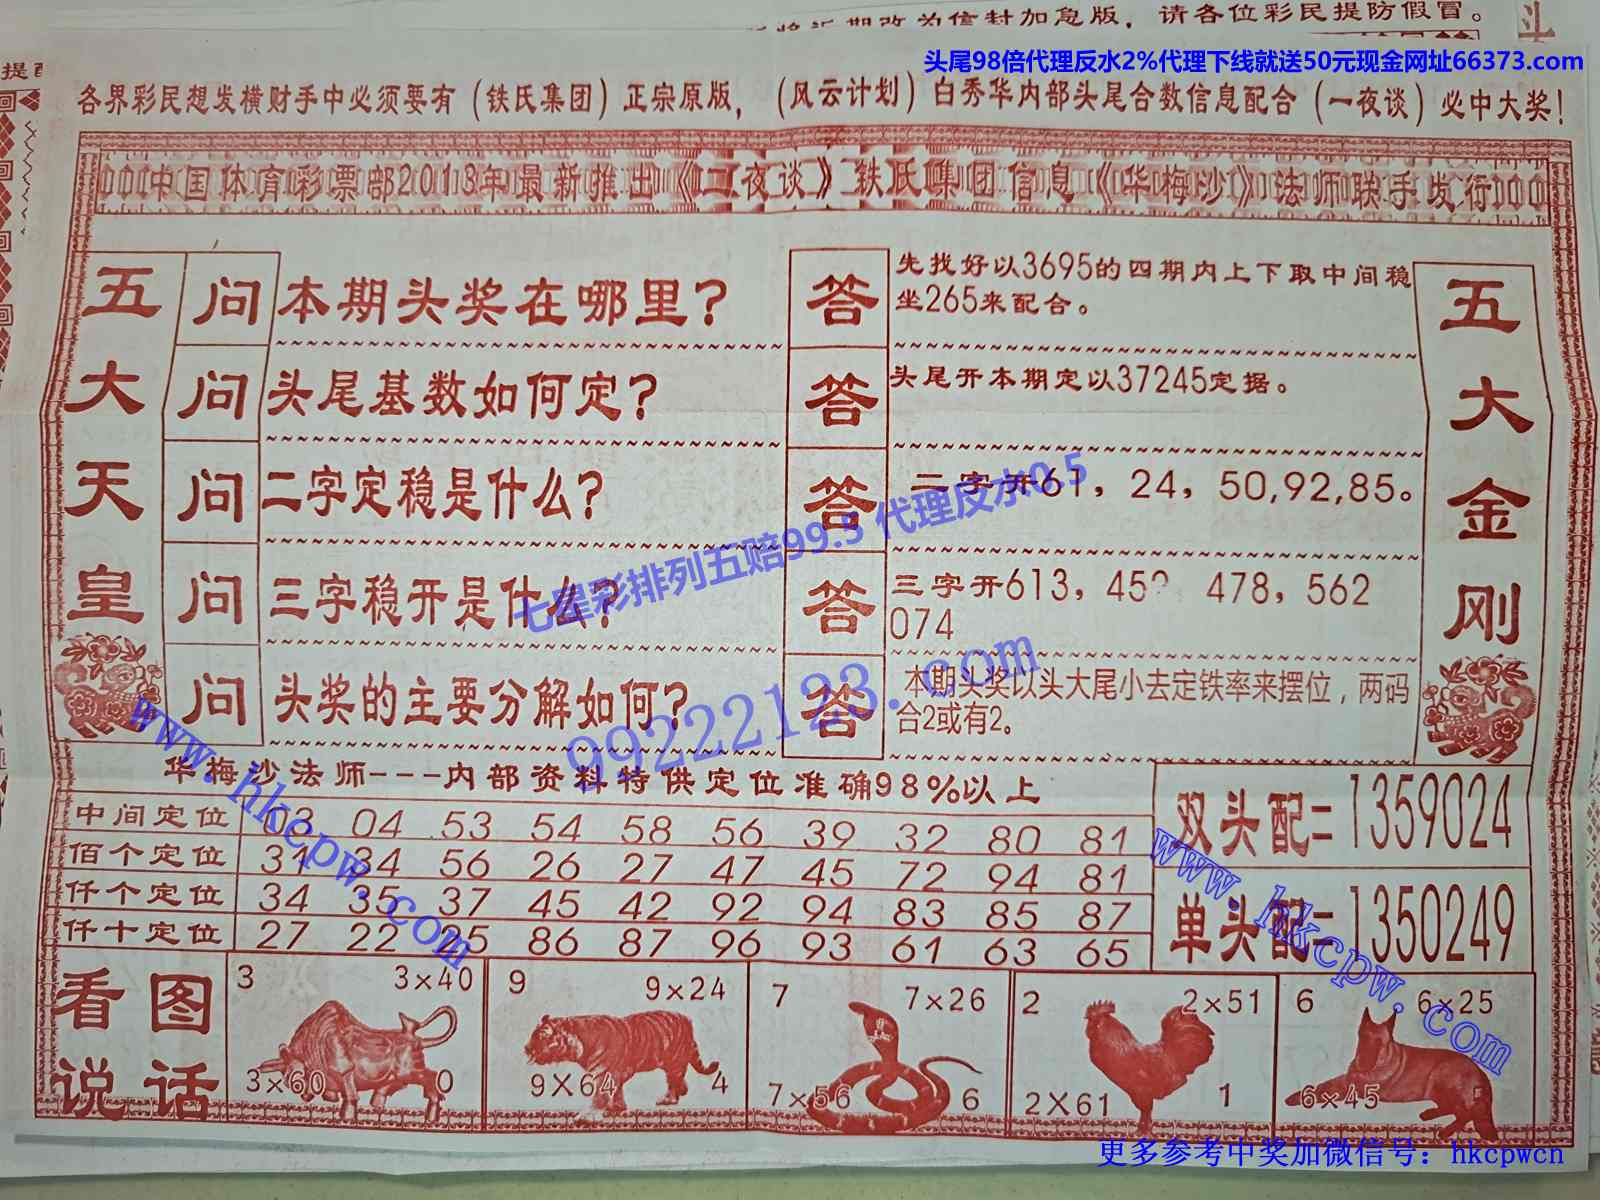 请各位彩民提防假冒。
头尾98倍代理反水2%代理下线就送50元现金网址66373.com
各界彩民想发横财手中必须要有（铁氏集团）正宗原版，（风云计划）白秀华内部头尾合数信息配合（一夜谈）必中大奖！
中国体育彩票部2013年最新推出《一夜谈》铁氏集团信息《华梅沙》法师联手发行
五大天皇
问 本期头奖在哪里？
答 先找好以3695的四期内上下取中间稳
坐265来配合。
问 头尾基数如何定？
答 头尾开本期定以37245定据。
问 二字定稳是什么？
答 二字开61，24，50,92,85。
问 三字稳开是什么？
答 三字开613，45 478，562
074
问 头奖的主要分解如何？
答 本期头奖以头大尾小去定铁率来摆位，两码
合2或有2。
五大金刚
七星彩排列五赔99.5 代理反水0.5
99222123.com
www.hkcpw.com
www.hkcpw.com
华梅沙法师---内部资料特供定位准确98%以上
中间定位 03 04 53 54 58 56 39 32 80 81
佰个定位 31 34 56 26 27 47 45 72 94 81
仟个定位 34 35 37 45 42 92 94 83 85 87
仟十定位 27 22 25 86 87 96 93 61 63 65
双头配=1359024
单头配=1350249
看图
说话
3 3×40
3×60 0
9 9×24
9×64 4
7 7×26
7×56 6
2 2×51
2×61 1
6 6×25
6×45
更多参考中奖加微信号：hkcpwcn